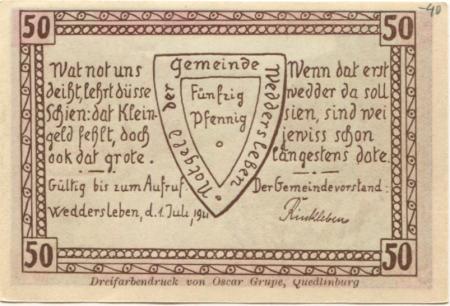 50
50
-40
Wat not uns
deiht, lehrt düsse
Schien: dat Klein-
geld fehlt, doch
ook dat grote.
Notgeld der Gemeinde Weddersleben
Fünfzig
Pfennig
Wenn dat erst
wedder da soll
sien, sind wei
jerwiss schon
längestens dote.
Gültig bis zum Aufruf.
Weddersleben, d. 1. Juli, 1921
Der Gemeindevorstand:
Rinkleben
50
50
Dreifarbendruck von Oscar Grupe, Quedlinburg